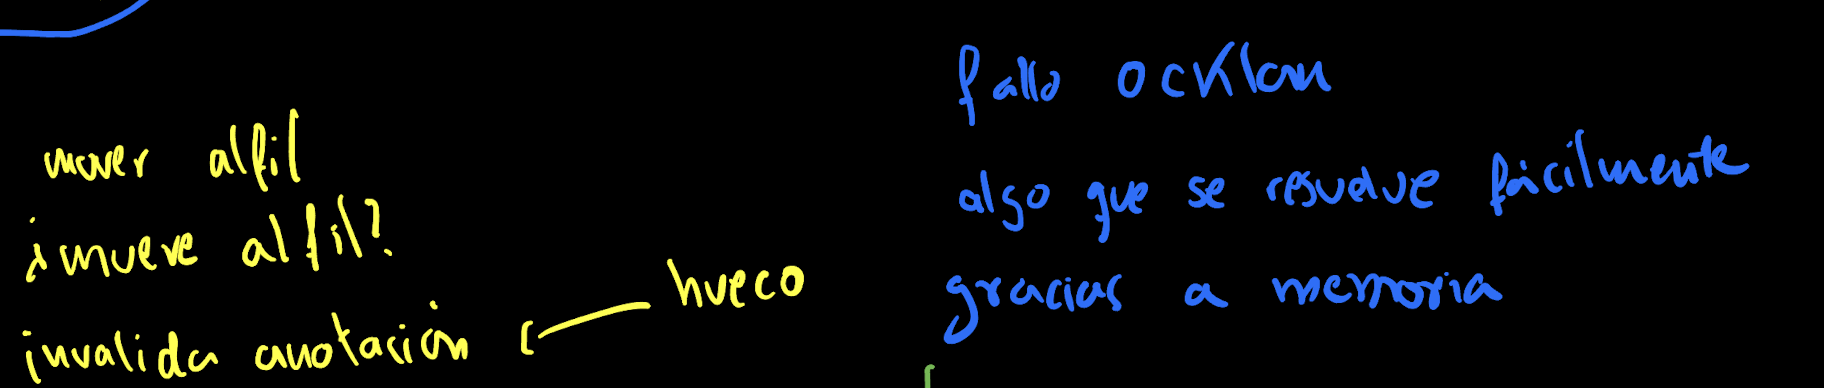 mover alfil
¿mueve alfil?
invalida anotación [
hueco
fallo ocklam
algo que se resuelve fácilmente
gracias a memoria